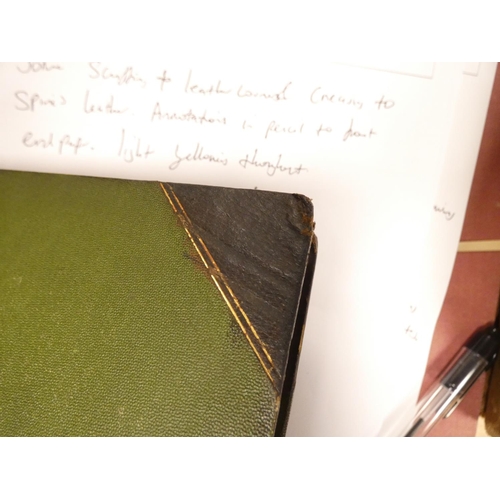 Some Scuffing to leather cornish Creasing to
Spines leather. Annotations in pencil to front
endpap. light yellowis throghout